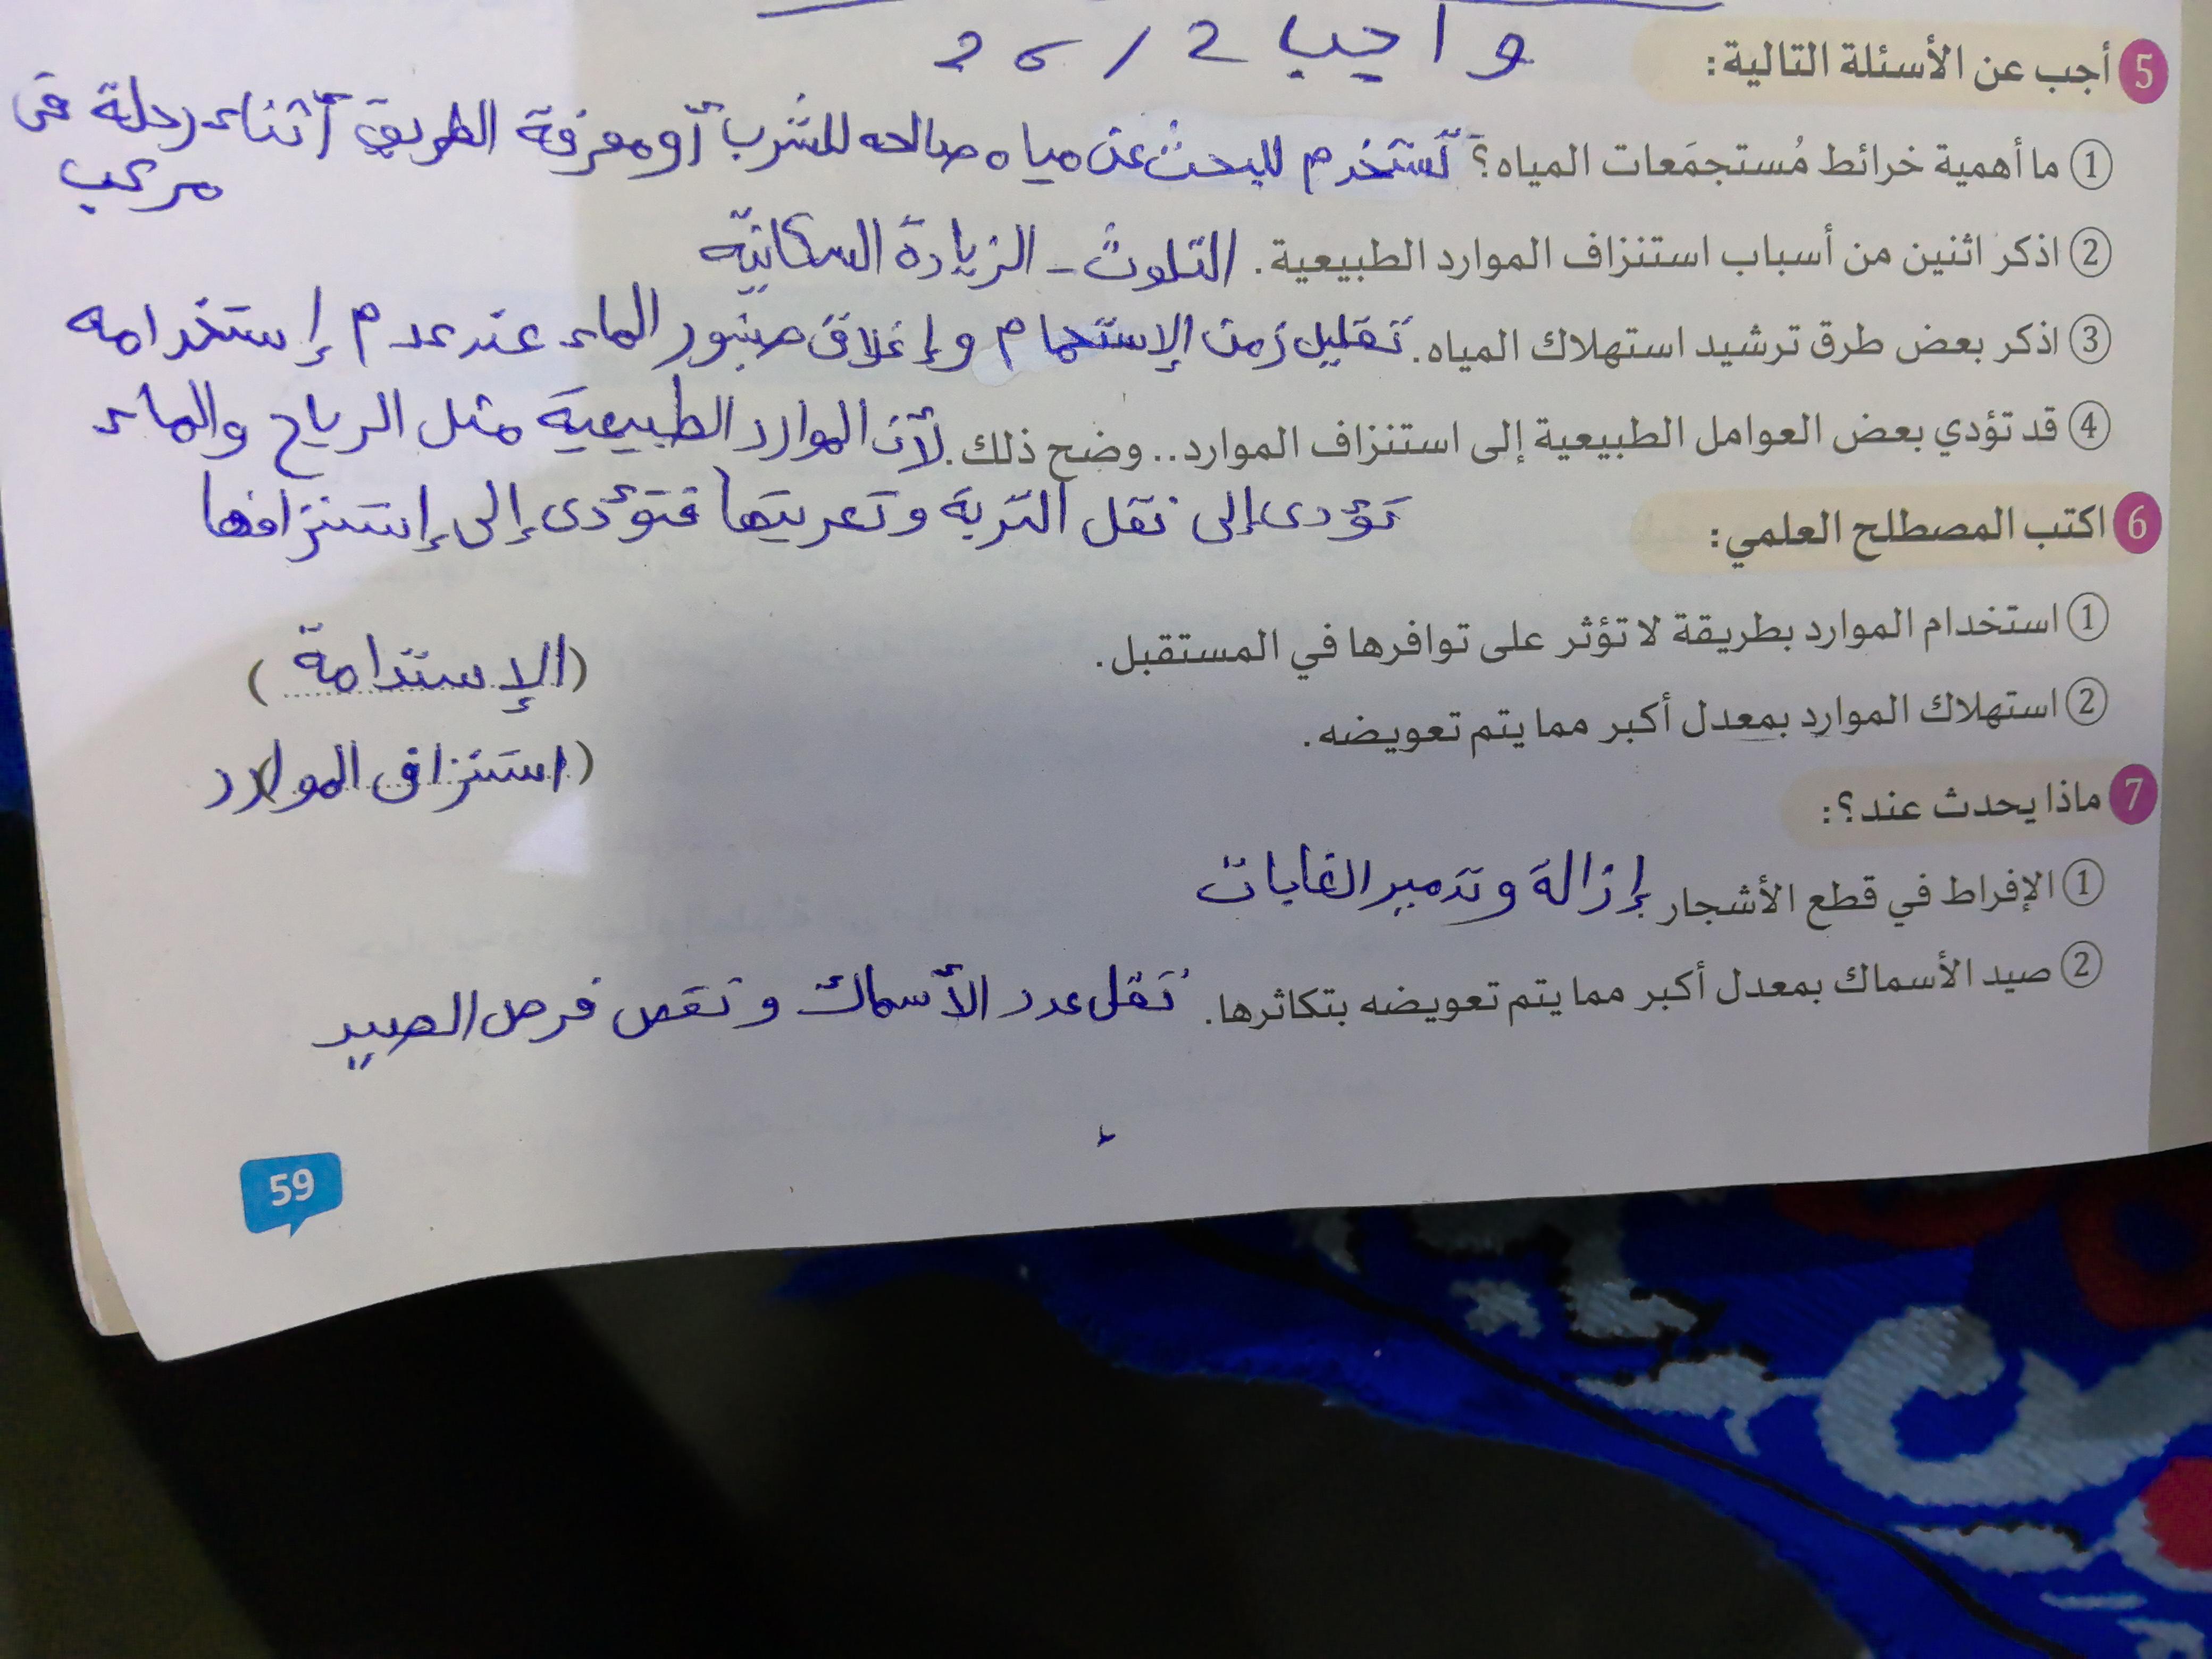 واجب 2 / 26
5 أجب عن الأسئلة التالية:
① ما أهمية خرائط مُستجمَعات المياه؟ تستخدم للبحث عن مياه صالحه للشرب أو معرفة الطريق أثناء رحلة فى
مركب
② اذكر اثنين من أسباب استنزاف الموارد الطبيعية. التلوث - الزيادة السكانية
③ اذكر بعض طرق ترشيد استهلاك المياه. تقليل زمن الإستحمام وإغلاق صنبور الماء عند عدم إستخدامه
④ قد تؤدي بعض العوامل الطبيعية إلى استنزاف الموارد.. وضح ذلك. لأن الموارد الطبيعية مثل الرياح والماء
تؤدى إلى نقل التربة وتعريتها فتؤدى إلى إستنزافها
6 اكتب المصطلح العلمي:
① استخدام الموارد بطريقة لا تؤثر على توافرها في المستقبل. (الإستدامة)
② استهلاك الموارد بمعدل أكبر مما يتم تعويضه. (استنزاف الموارد)
7 ماذا يحدث عند؟:
① الإفراط في قطع الأشجار إزالة وتدمير الغابات
② صيد الأسماك بمعدل أكبر مما يتم تعويضه بتكاثرها. تقل عدد الأسماك ونقص فرص الصيد
59